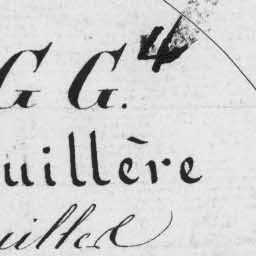 G G. 4
uillère
uillet